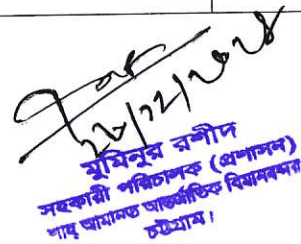 ২৮/১২/২০২৪
মুমিনুর রশীদ
সহকারী পরিচালক (প্রশাসন)
শাহ্ আমানত আন্তর্জাতিক বিমানবন্দর
চট্টগ্রাম।